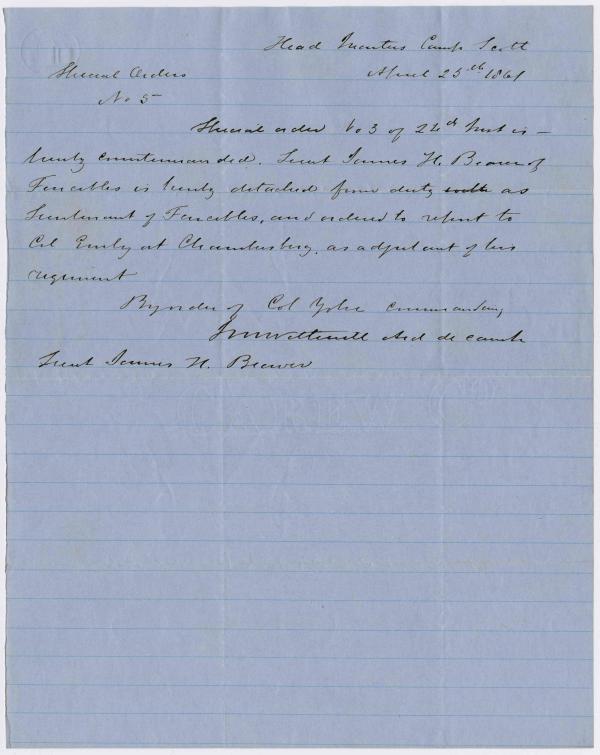 Head Quarters Camp Scott
April 25th 1861
Special Orders
No 5
Special order No 3 of 24th Inst is
hereby countermanded. Lieut James H. Beaver of
Fencibles is hereby detached from duty as
Lieutenant of Fencibles, and ordered to report to
Col Emly at Chambersburg, as adjutant of his
regiment
By order of Col Yohe commanding
Aid de camp
Lieut James H. Beaver